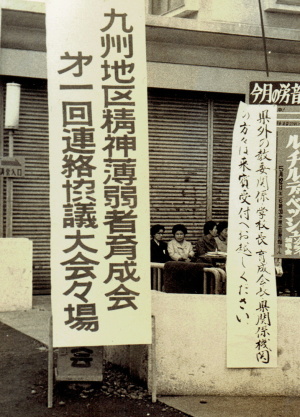 今月の労音
県外の教委関係学校長育成会長県関係機関
の方々は来賓受付へお越しください
九州地区精神薄弱者育成会
才一回連絡協議大会々場